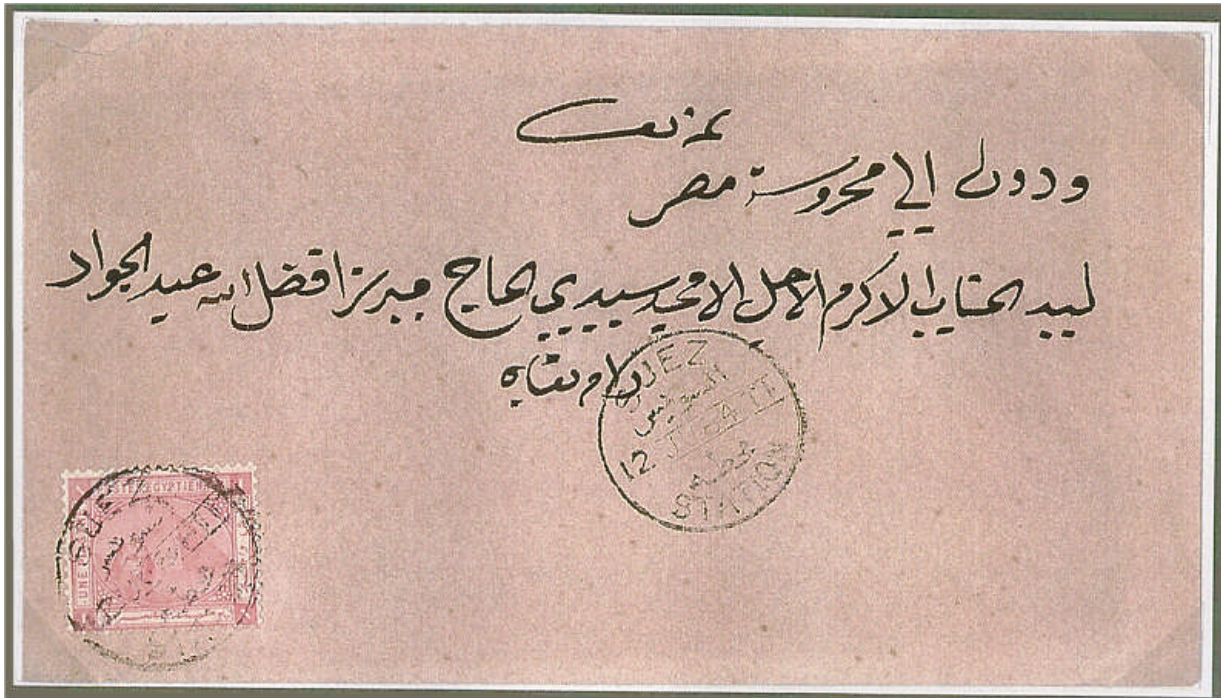 الي محروسة مصر
ليد الجناب الاكرم الاجل الامجد سيدي الحاج ميرزا فضل الله عبد الجواد
دام بقاه
SUEZ
السويس
12
محطه
STATION
POSTES EGYPTIENNES
SUEZ